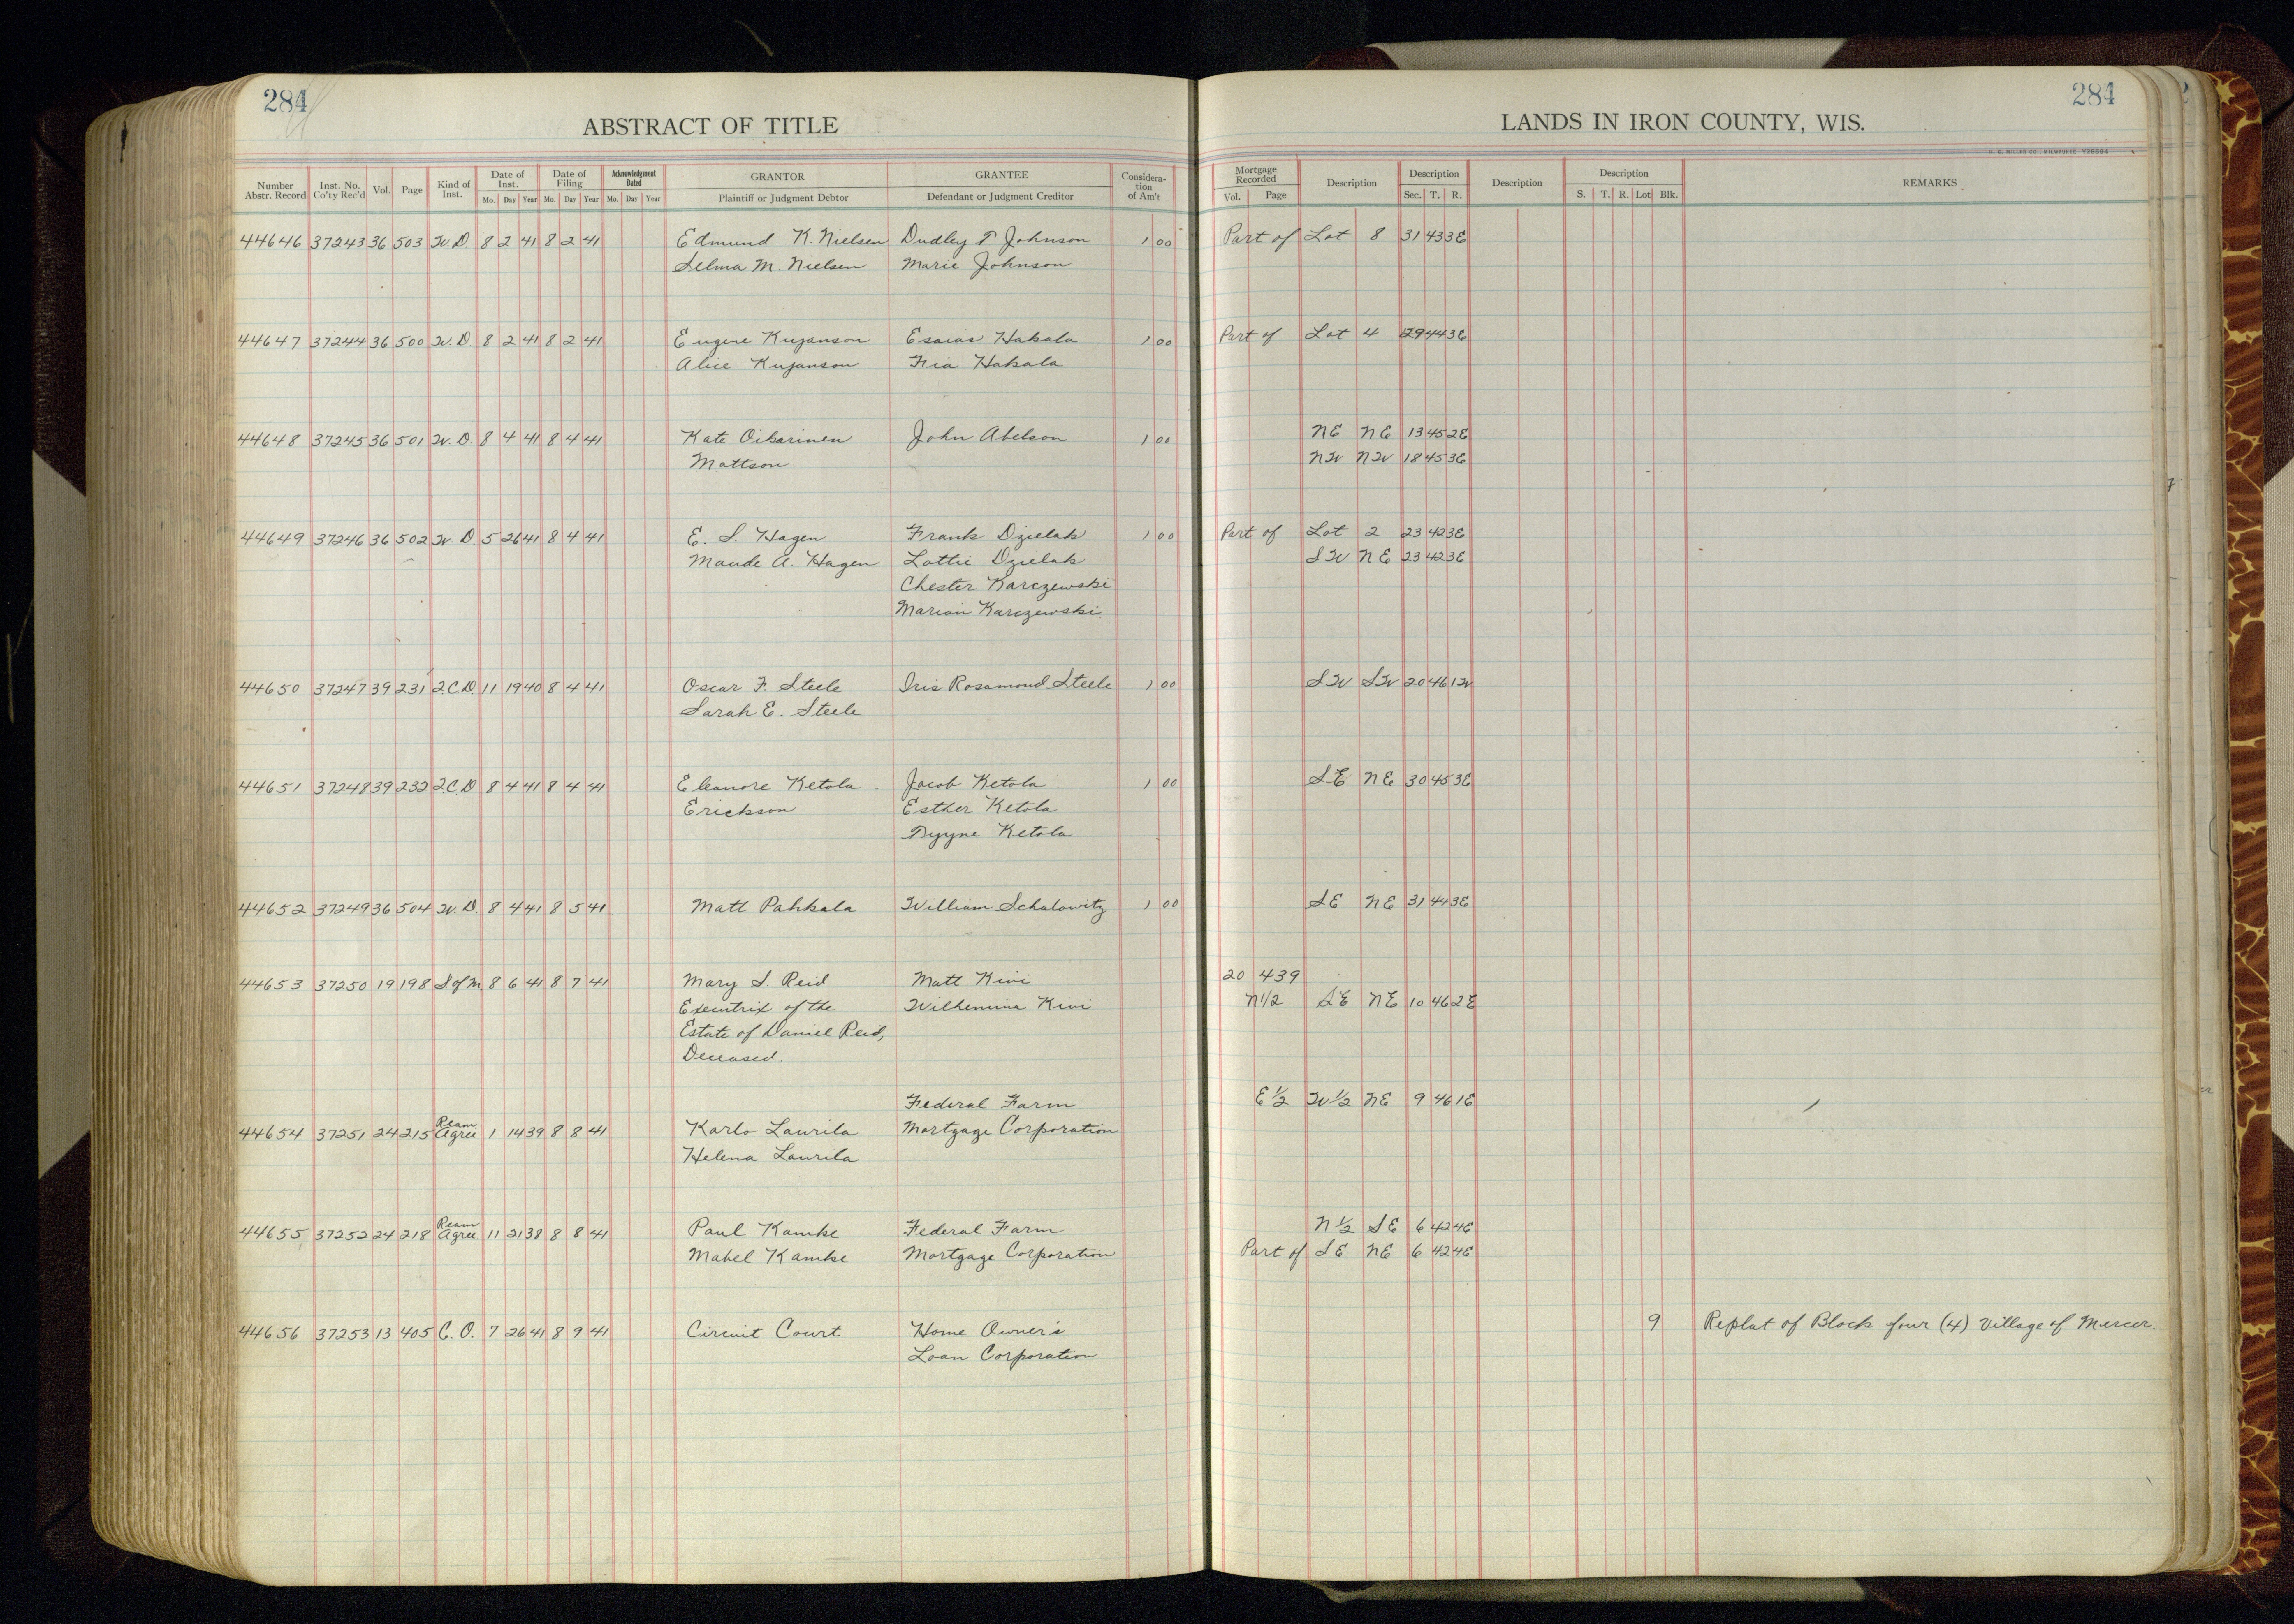 284
ABSTRACT OF TITLE
Number Abstr. Record Inst. No. Co'ty Rec'd Vol. Page Kind of Inst. Date of Inst. Mo. Day Year Date of Filing Mo. Day Year Acknowledgment Dated Mo. Day Year GRANTOR Plaintiff or Judgment Debtor GRANTEE Defendant or Judgment Creditor Considera-tion of Am't
44646 37243 36 503 W.D. 8 2 41 8 2 41 Edmund K. Nielsen Dudley T. Johnson 1 00
Selma M. Nielsen Marie Johnson
44647 37244 36 500 W.D. 8 2 41 8 2 41 Eugene Kujanson Esaias Hakala 1 00
Alice Kujanson Fia Hakala
44648 37245 36 501 W.D. 8 4 41 8 4 41 Kate Oikarinen John Abelson 1 00
Mattson
44649 37246 36 502 W.D. 5 26 41 8 4 41 E. S. Hagen Frank Dzielak 1 00
Maude A. Hagen Lottie Dzielak
Chester Karczewski
Marian Karczewski
44650 37247 39 231 2.C.D. 11 19 40 8 4 41 Oscar F. Steele Iris Rosamond Steele 1 00
Sarah E. Steele
44651 37248 39 232 2.C.D 8 4 41 8 4 41 Eleanore Ketola Jacob Ketola 1 00
Erickson Esther Ketola
Tyyne Ketola
44652 37249 36 504 W.D 8 4 41 8 5 41 Matt Pahkala William Schalowitz 1 00
44653 37250 19 198 S of M 8 6 41 8 7 41 Mary S. Reid Matt Kivi
Executrix of the Wilhemina Kivi
Estate of Daniel Reid,
Deceased.
Federal Farm
44654 37251 24 215 Ream. Agree 1 14 39 8 8 41 Karlo Laurila Mortgage Corporation
Helena Laurila
44655 37252 24 218 Ream Agree 11 21 38 8 8 41 Paul Kamke Federal Farm
Mabel Kamke Mortgage Corporation
44656 37253 13 405 C.O. 7 26 41 8 9 41 Circuit Court Home Owner's
Loan Corporation
284
LANDS IN IRON COUNTY, WIS.
Mortgage Recorded Vol. Page Description Description Sec. T. R. Description Description S. T. R. Lot Blk. REMARKS
Part of Lot 8 31 43 3E
Part of Lot 4 29 44 3E
NE NE 13 45 2E
NW NW 18 45 3E
Part of Lot 2 23 42 3E
SW NE 23 42 3E
SW SW 20 46 1W
SE NE 30 45 3E
SE NE 31 44 3E
20 439
N1/2 SE NE 10 46 2E
E 1/2 W 1/2 NE 9 46 1E
N 1/2 SE 6 42 4E
Part of SE NE 6 42 4E
9 Replat of Block four (4) Village of Mercer.